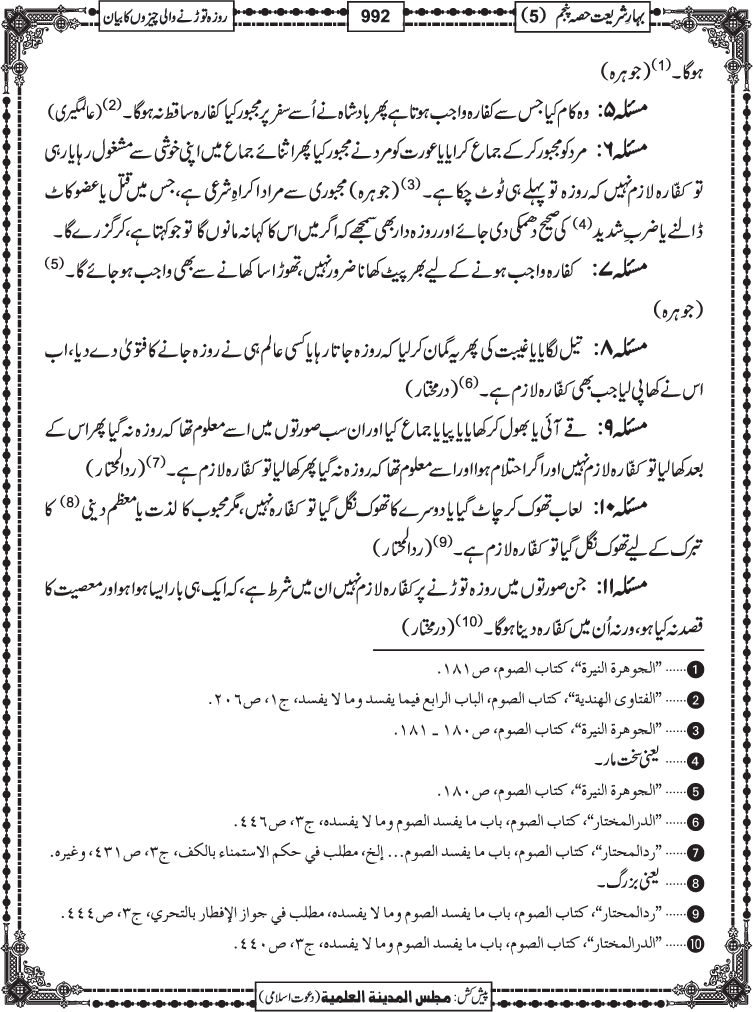 بہارِ شریعت حصہ پنجم (5)
992
روزہ توڑنے والی چیزوں کا بیان
ہوگا۔(1) (جوہرہ)
مسئلہ ۵: وہ کام کیا جس سے کفارہ واجب ہوتا ہے پھر بادشاہ نے اُسے سفر پر مجبور کیا کفارہ ساقط نہ ہوگا۔(2) (عالمگیری)
مسئلہ ۶: مرد کو مجبور کر کے جماع کرایا یا عورت کو مرد نے مجبور کیا پھر اثنائے جماع میں اپنی خوشی سے مشغول رہا یا رہی
تو کفّارہ لازم نہیں کہ روزہ تو پہلے ہی ٹوٹ چکا ہے۔(3) (جوہرہ) مجبوری سے مراد اکراہِ شرعی ہے، جس میں قتل یا عضو کاٹ
ڈالنے یا ضربِ شدید(4) کی صحیح دھمکی دی جائے اور روزہ دار بھی سمجھے کہ اگر میں اس کا کہا نہ مانوں گا تو جو کہتا ہے، کر گزرے گا۔
مسئلہ ۷: کفارہ واجب ہونے کے لیے بھر پیٹ کھانا ضرور نہیں، تھوڑا سا کھانے سے بھی واجب ہو جائے گا۔(5)
(جوہرہ)
مسئلہ ۸: تیل لگایا یا غیبت کی پھر یہ گمان کر لیا کہ روزہ جاتا رہا یا کسی عالم ہی نے روزہ جانے کا فتویٰ دے دیا، اب
اس نے کھا پی لیا جب بھی کفّارہ لازم ہے۔(6) (درمختار)
مسئلہ ۹: قے آئی یا بھول کر کھایا یا پیا یا جماع کیا اور ان سب صورتوں میں اسے معلوم تھا کہ روزہ نہ گیا پھر اس کے
بعد کھا لیا تو کفّارہ لازم نہیں اور اگر احتلام ہوا اور اسے معلوم تھا کہ روزہ نہ گیا پھر کھا لیا تو کفّارہ لازم ہے۔(7) (ردالمحتار)
مسئلہ ۱۰: لعاب تھوک کر چاٹ گیا یا دوسرے کا تھوک نگل گیا تو کفّارہ نہیں، مگر محبوب کا لذت یا معظم دینی(8) کا
تبرک کے لیے تھوک نگل گیا تو کفّارہ لازم ہے۔(9) (ردالمحتار)
مسئلہ ۱۱: جن صورتوں میں روزہ توڑنے پر کفّارہ لازم نہیں ان میں شرط ہے، کہ ایک ہی بار ایسا ہوا ہو اور معصیت کا
قصد نہ کیا ہو، ورنہ اُن میں کفّارہ دینا ہوگا۔(10) (درمختار)
1 ...... "الجوهرة النيرة"، كتاب الصوم، ص١٨١.
2 ...... "الفتاوى الهندية"، كتاب الصوم، الباب الرابع فيما يفسد وما لا يفسد، ج١، ص٢٠٦.
3 ...... "الجوهرة النيرة"، كتاب الصوم، ص١٨٠ ـ ١٨١.
4 ...... یعنی سخت مار۔
5 ...... "الجوهرة النيرة"، كتاب الصوم، ص١٨٠.
6 ...... "الدرالمختار"، كتاب الصوم، باب ما يفسد الصوم وما لا يفسده، ج٣، ص٤٤٦.
7 ...... "ردالمحتار"، كتاب الصوم، باب ما يفسد الصوم... إلخ، مطلب في حكم الاستمناء بالكف، ج٣، ص٤٣١، وغيره.
8 ...... یعنی بزرگ۔
9 ...... "ردالمحتار"، كتاب الصوم، باب ما يفسد الصوم وما لا يفسده، مطلب في جواز الإفطار بالتحري، ج٣، ص٤٤٤.
10 ...... "الدرالمختار"، كتاب الصوم، باب ما يفسد الصوم وما لا يفسده، ج٣، ص٤٤٠.
پیش کش: مجلس المدینة العلمیة (دعوتِ اسلامی)